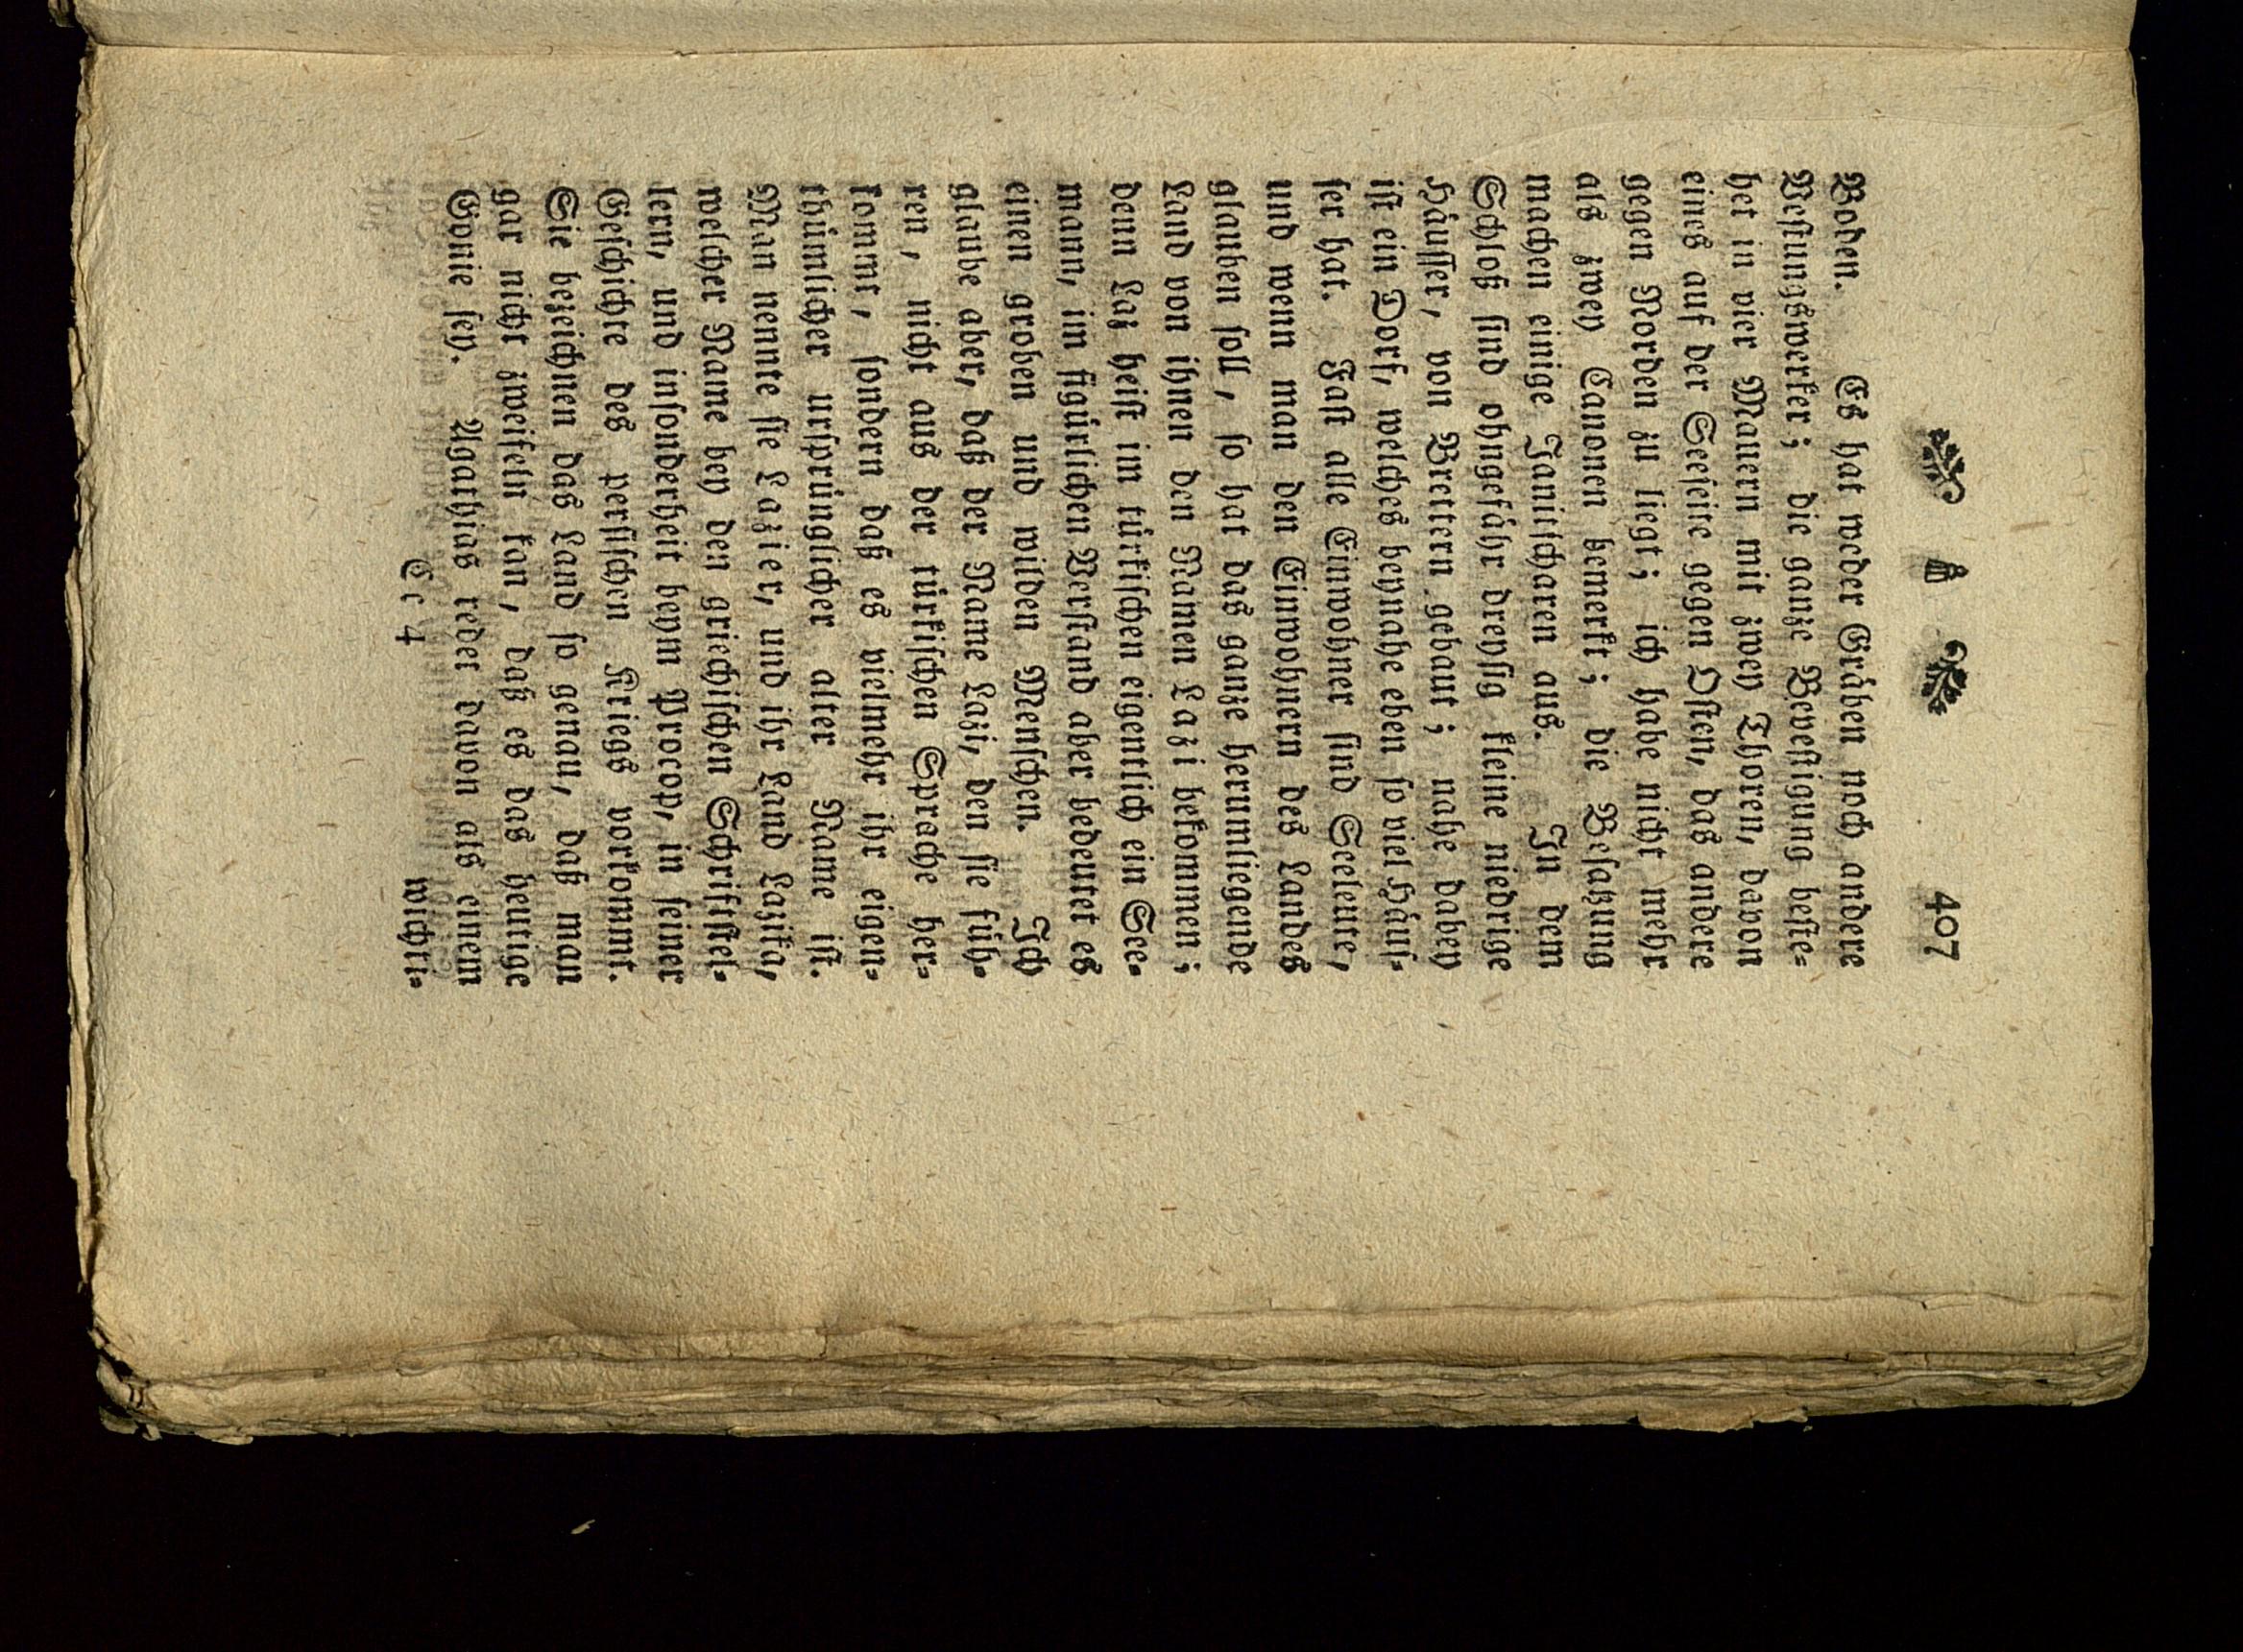 407
Boden. Es hat weder Gräben noch andere
Vestungswerker; die ganze Bevestigung beste-
het in vier Mauern mit zwey Thoren, davon
eines auf der Seeseite gegen Osten, das andere
gegen Norden zu liegt; ich habe nicht mehr
als zwey Canonen bemerkt; die Besatzung
machen einige Janitscharen aus. In dem
Schloß sind ohngefähr dreyßig kleine niedrige
Häusser, von Brettern gebaut; nahe dabey
ist ein Dorf, welches beynahe eben so viel Häus-
ser hat. Fast alle Einwohner sind Seeleute,
und wenn man den Einwohnern des Landes
glauben soll, so hat das ganze herumliegende
Land von ihnen den Namen Lazi bekommen;
denn Laz heist im türkischen eigentlich ein See-
mann, im figürlichen Verstand aber bedeutet es
einen groben und wilden Menschen. Ich
glaube aber, daß der Name Lazi, den sie füh-
ren, nicht aus der türkischen Sprache her-
kommt, sondern daß es vielmehr ihr eigen-
thümlicher ursprünglicher alter Name ist.
Man nennte sie Lazier, und ihr Land Lazika,
welcher Name bey den griechischen Schriftstel-
lern, und insonderheit beym Procop, in seiner
Geschichte des persischen Kriegs vorkommt.
Sie bezeichnen das Land so genau, daß man
gar nicht zweifeln kan, daß es das heutige
Gonie sey. Agathias redet davon als einem
Cc 4
wichti-